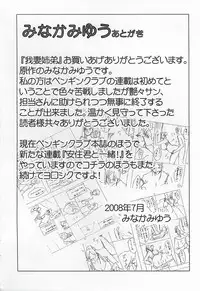 みなかみゆう あとがき
『我妻姉弟』お買いあげありがとうございます。
原作のみなかみゆうです。
私の方はペンギンクラブの連載は初めてと
いうことで色々苦戦しましたが艶々サン、
担当さんに助けれつつ無事に終了する
ことが出来ました。温かく見守って下さった
読者様共々ありがとうございました。
現在ペンギンクラブ本誌のほうで
新たな連載『安住君と一緒!』を
やっていますのでコチラのほうもまた
続けてヨロシクですよ!
2008年7月
みなかみゆう